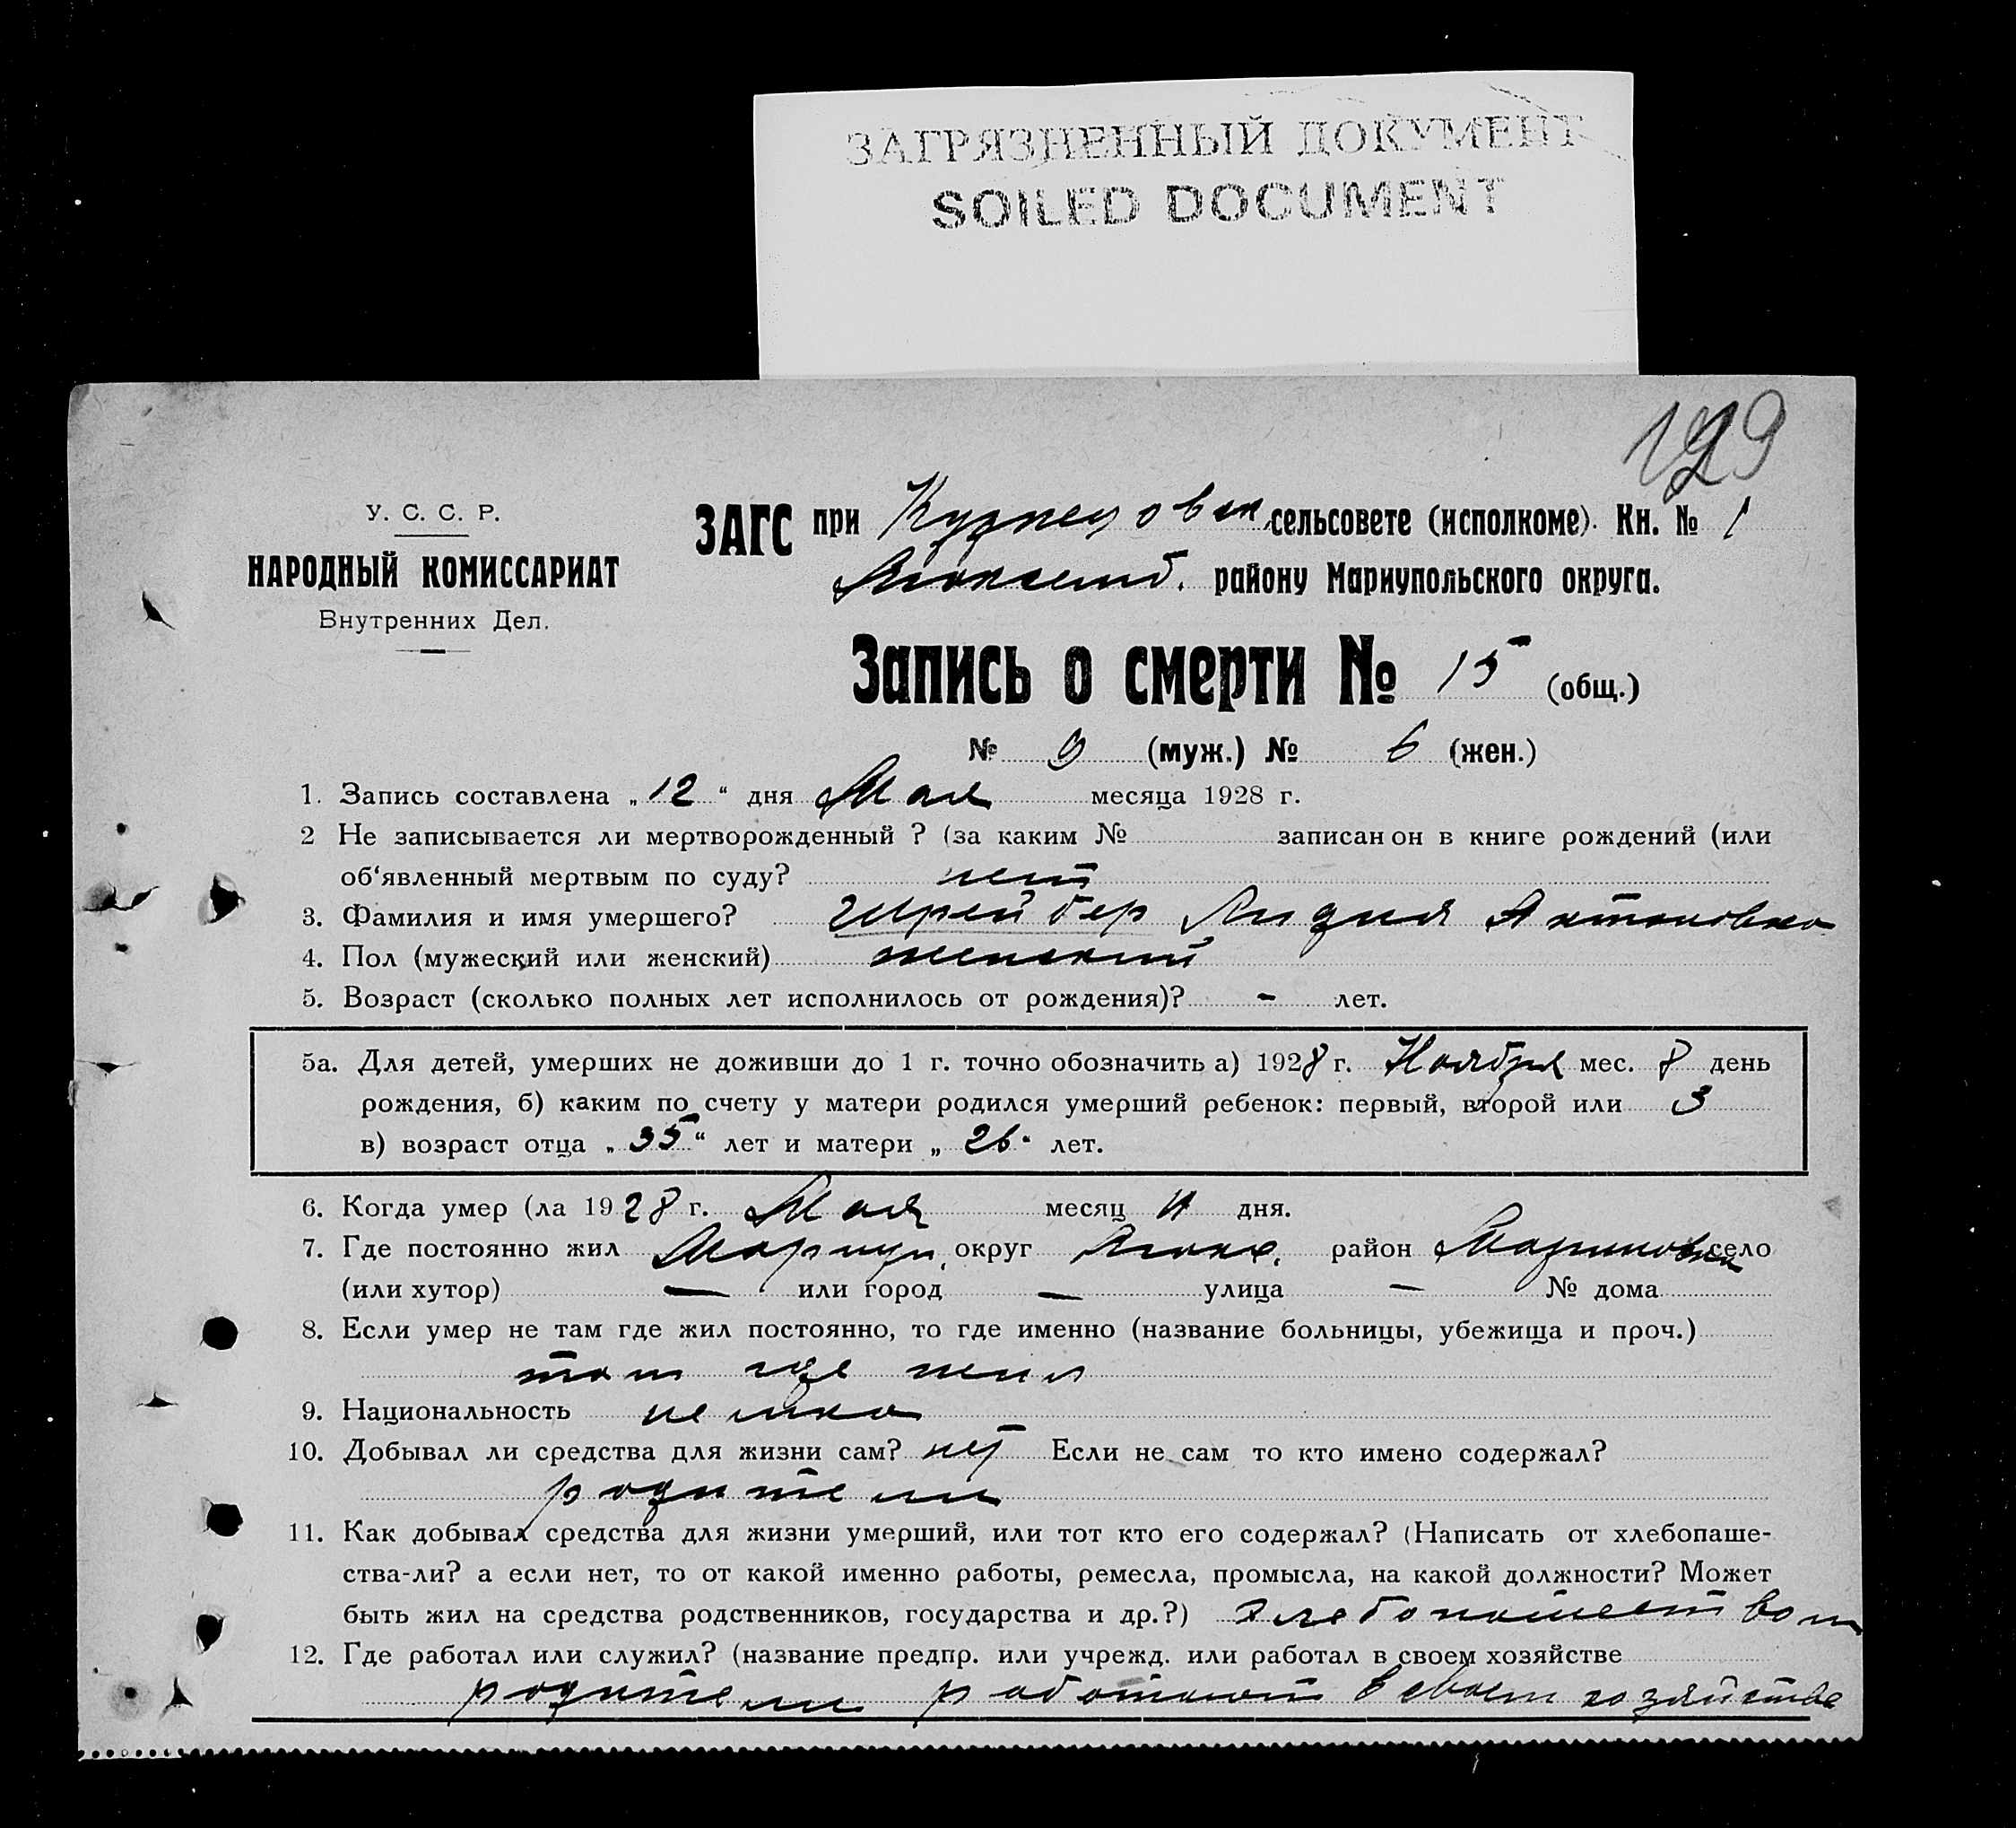 ЗАГРЯЗНЕННЫЙ ДОКУМЕНТ
SOILED DOCUMENT
У. С. С. Р.
НАРОДНЫЙ КОМИССАРИАТ
Внутренних Дел.
ЗАГС при Кузнецовск. сельсовете (исполкоме). Кн. № 1
району Мариупольского округа.
Запись о смерти № 15 (общ.)
№ 9 (муж.) № 6 (жен.)
1. Запись составлена „ 12 “ дня Мая месяца 1928 г.
2 Не записывается ли мертворожденный ? (за каким № записан он в книге рождений (или
об‘явленный мертвым по суду? нет
3. Фамилия и имя умершего? Шрейбер Лидия Антоновна
4. Пол (мужеский или женский) женский
5. Возраст (сколько полных лет исполнилось от рождения)? - лет.
5а. Для детей, умерших не доживши до 1 г. точно обозначить а) 1928 г. Ноября мес. 8 день
рождения, б) каким по счету у матери родился умерший ребенок: первый, второй или 3
в) возраст отца „ 35 “ лет и матери „ 26 “ лет.
6. Когда умер (ла 1928 г. Мая месяц 11 дня.
7. Где постоянно жил Мариуп. округ Люкс. район Мариновка село
(или хутор) — или город — улица — № дома
8. Если умер не там где жил постоянно, то где именно (название больницы, убежища и проч.)
там где жил
9. Национальность немка
10. Добывал ли средства для жизни сам? нет Если не сам то кто имено содержал?
родители
11. Как добывал средства для жизни умерший, или тот кто его содержал? (Написать от хлебопаше-
ства-ли? а если нет, то от какой именно работы, ремесла, промысла, на какой должности? Может
быть жил на средства родственников, государства и др.?) хлебопашеством
12. Где работал или служил? (название предпр. или учрежд. или работал в своем хозяйстве
родители работают в своем хозяйстве